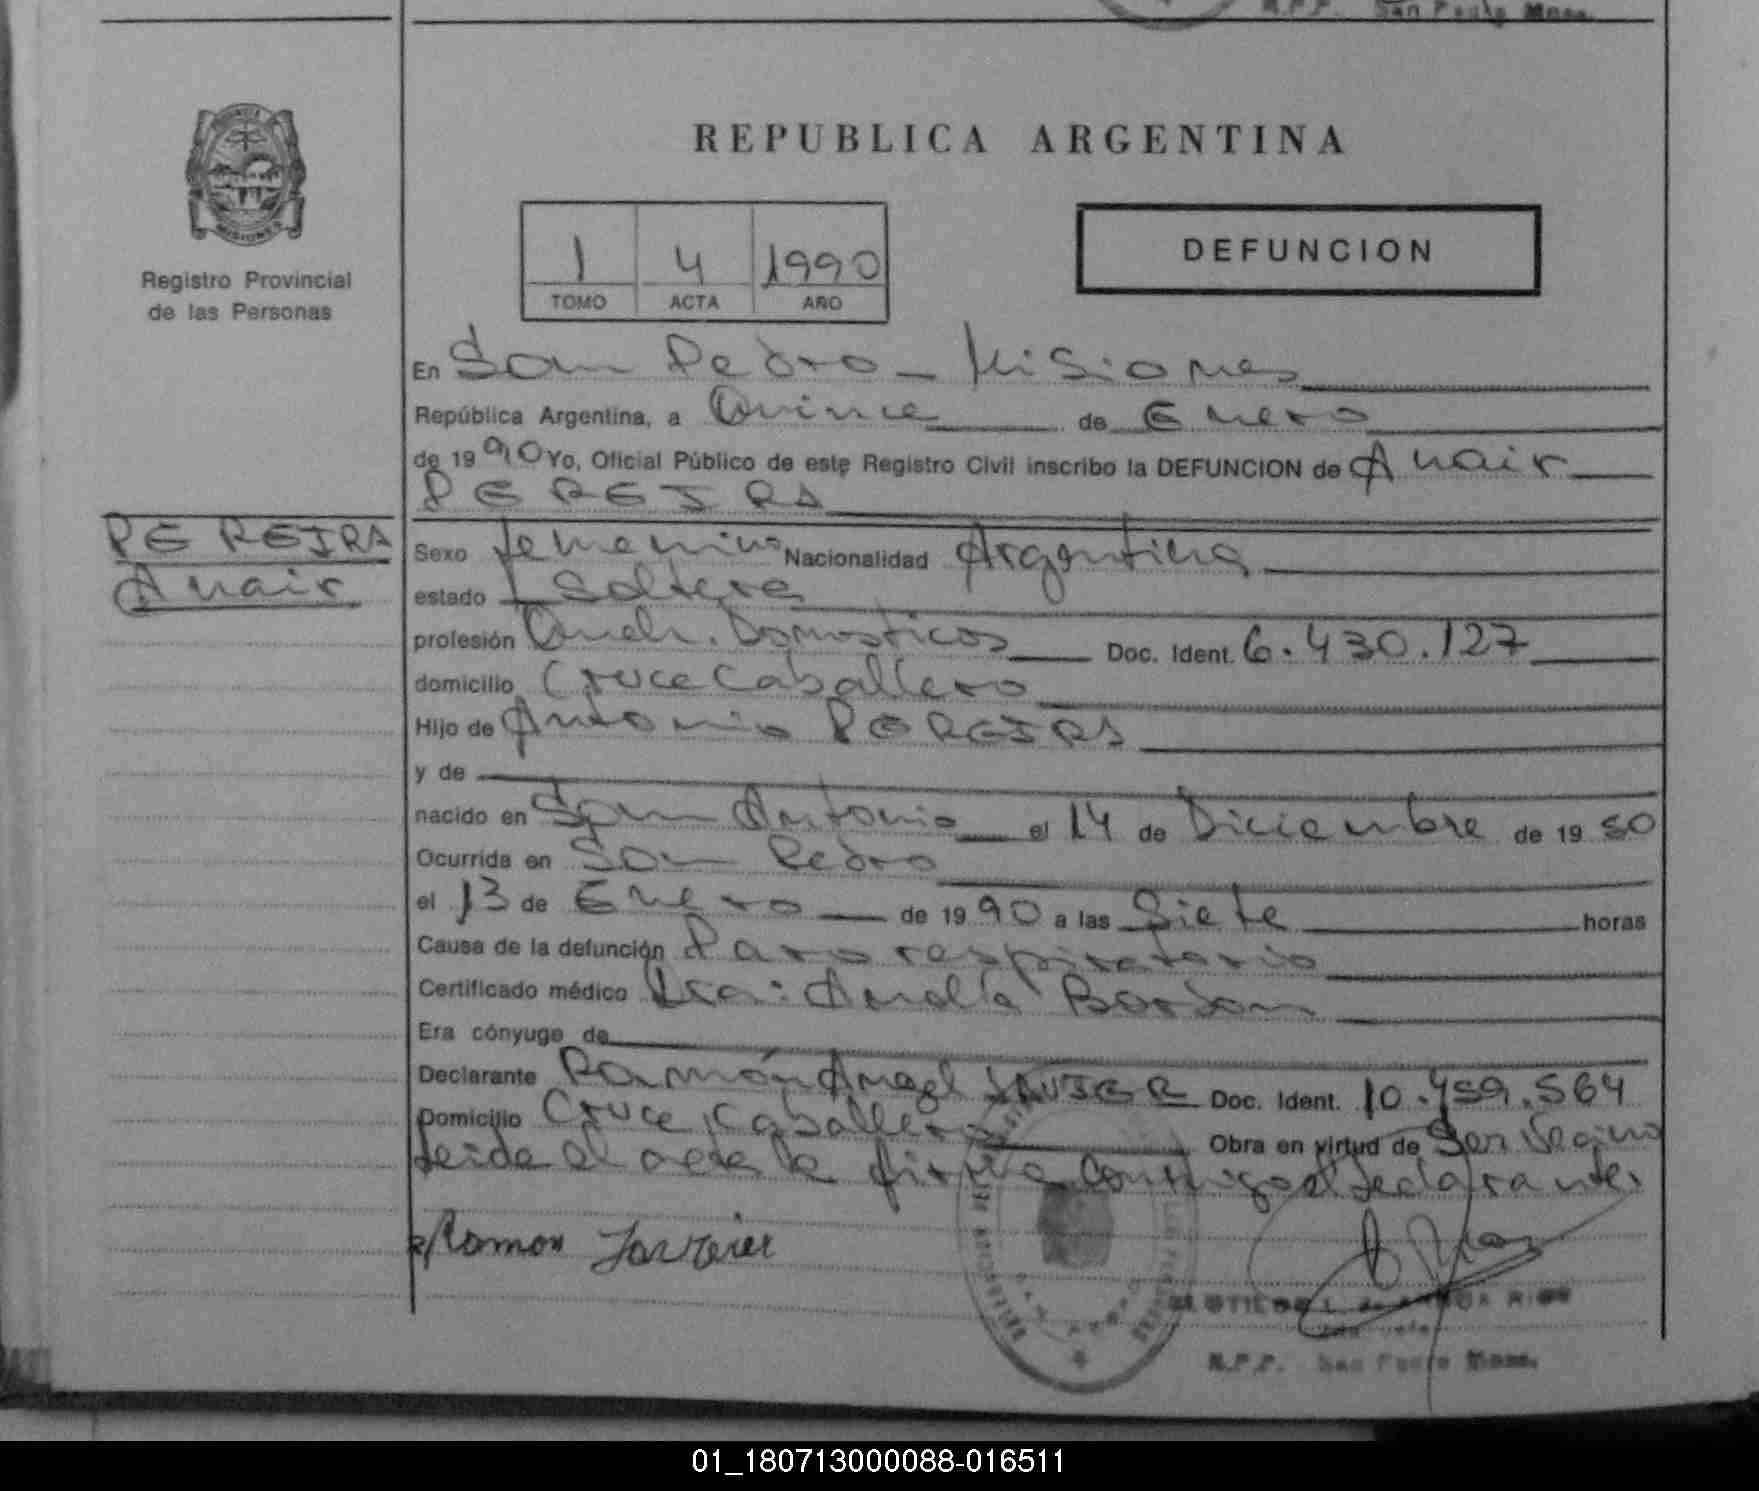 R.P.P. San Pedro Mnes.
REPUBLICA ARGENTINA
1 4 1990
TOMO ACTA AÑO
DEFUNCION
Registro Provincial
de las Personas
En San Pedro - Misiones
República Argentina, a Quince de Enero
de 1990 Yo, Oficial Público de este Registro Civil inscribo la DEFUNCION de Anair
PEREIRA
PEREIRA
Anair
Sexo femenino Nacionalidad Argentina
estado Soltera
profesión Queh. Domesticos Doc. Ident. 6.430.127
domicilio Cruce Caballero
Hijo de Antonio PEREIRA
y de
nacido en San Antonio el 14 de Diciembre de 19 50
Ocurrida en San Pedro
el 13 de Enero de 19 90 a las Siete horas
Causa de la defunción Paro respiratorio
Certificado médico Dra: Analía Bordon
Era cónyuge de
Declarante Ramón Angel JAVIER Doc. Ident. 10.459.564
Domicilio Cruce Caballero Obra en virtud de Ser Vecino
leida el acta la firma conmigo el declarante.
Ramon Javier
R.P.P. San Pedro Mnes.
01_180713000088-016511